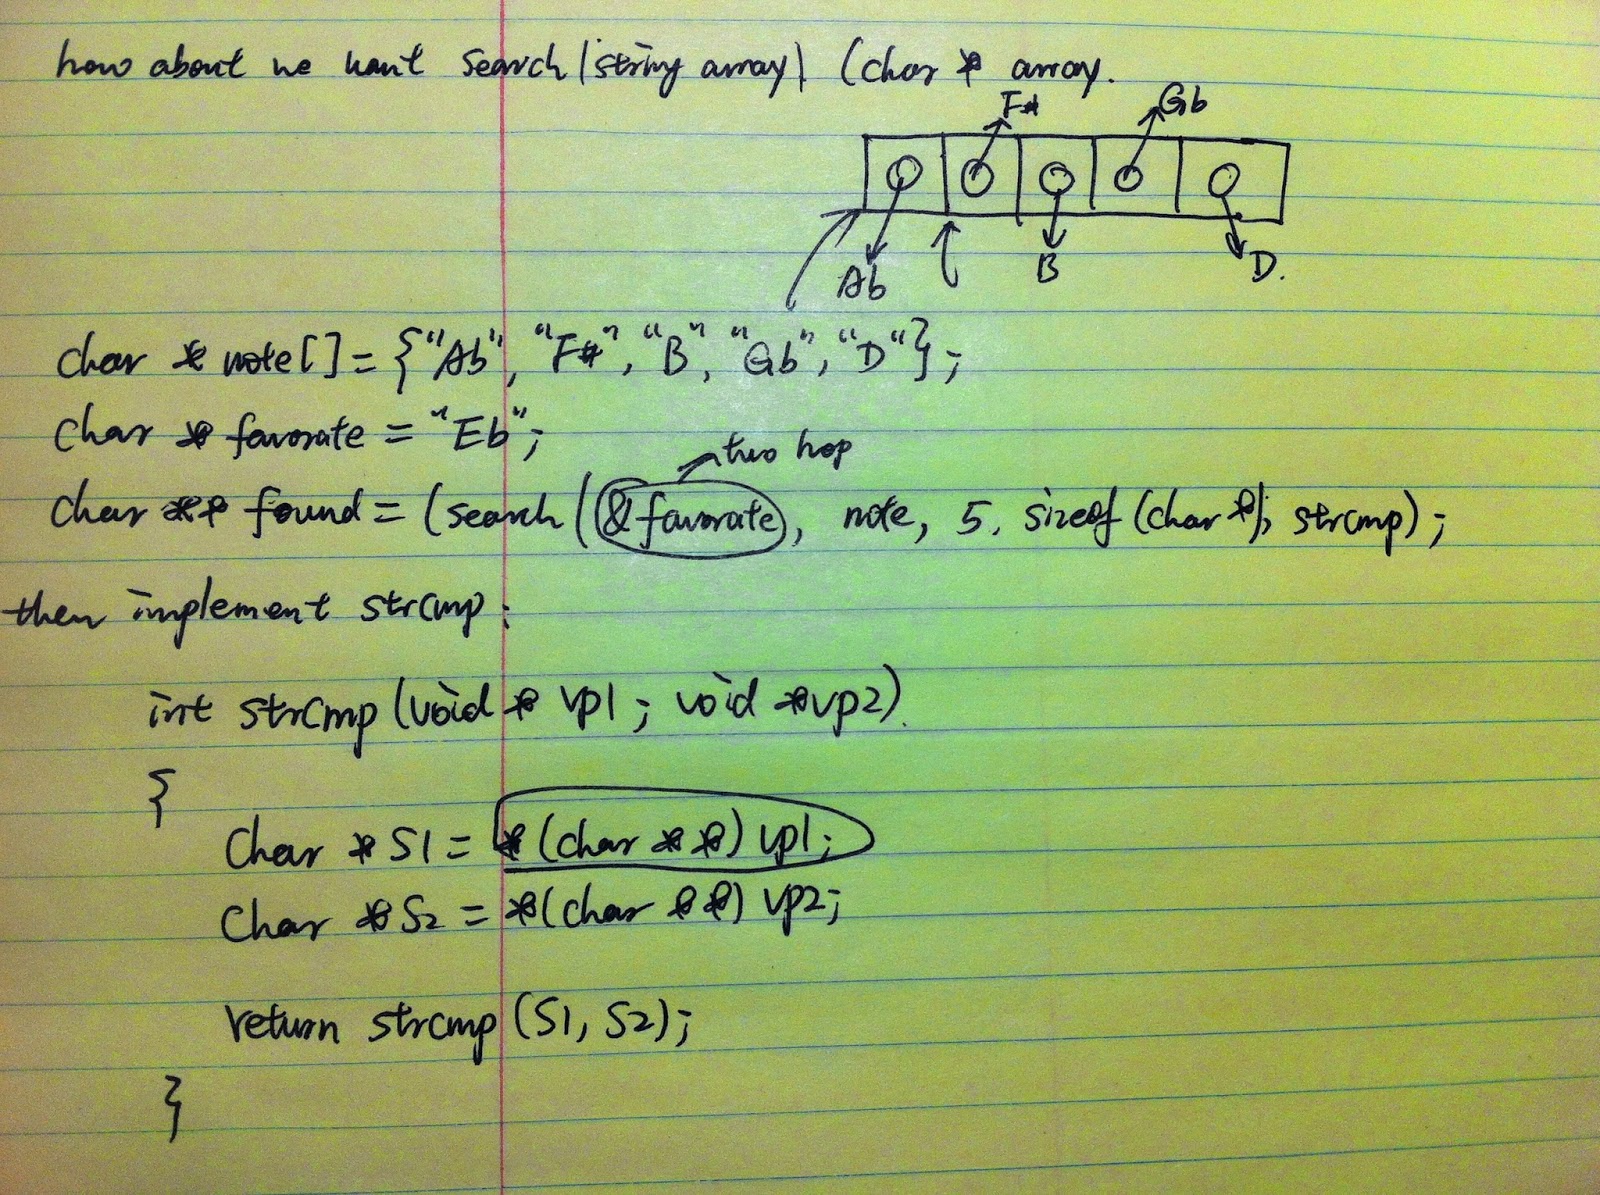 how about we want search (string array) (char * array.
F# Gb
Ab B D.
char * note[] = {"Ab", "F#", "B", "Gb", "D"};
char * favorate = "Eb";
two hop
char ** found = (search (&favorate), note, 5, sizeof (char *), strcmp);
then implement strcmp:
int strcmp (void * vp1; void *vp2).
{
char * S1 = *(char * *) vp1;
char * S2 = *(char * *) vp2;
return strcmp (S1, S2);
}